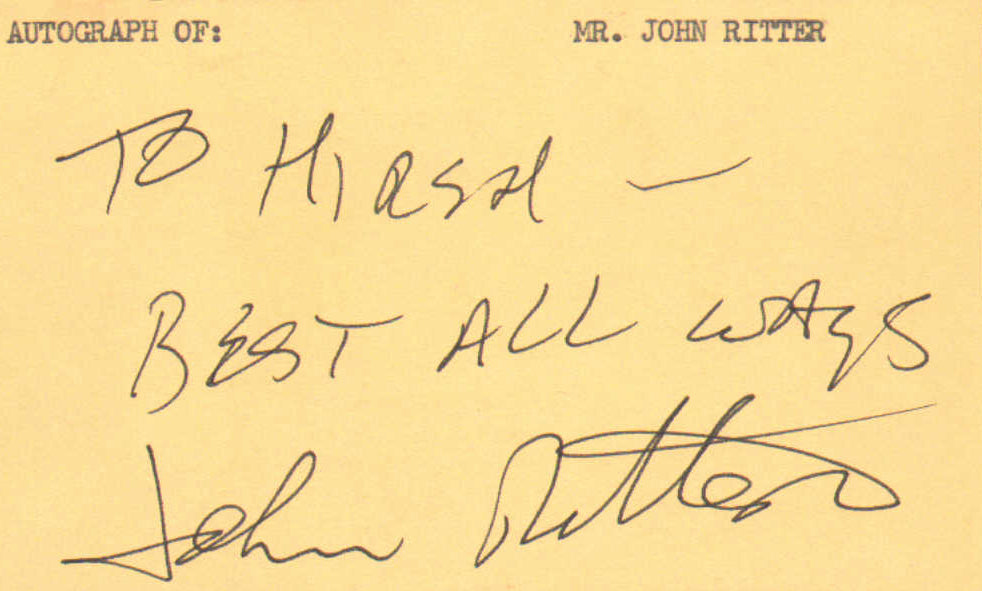 AUTOGRAPH OF: MR. JOHN RITTER
TO HIRSH —
BEST ALL WAYS
John Ritter